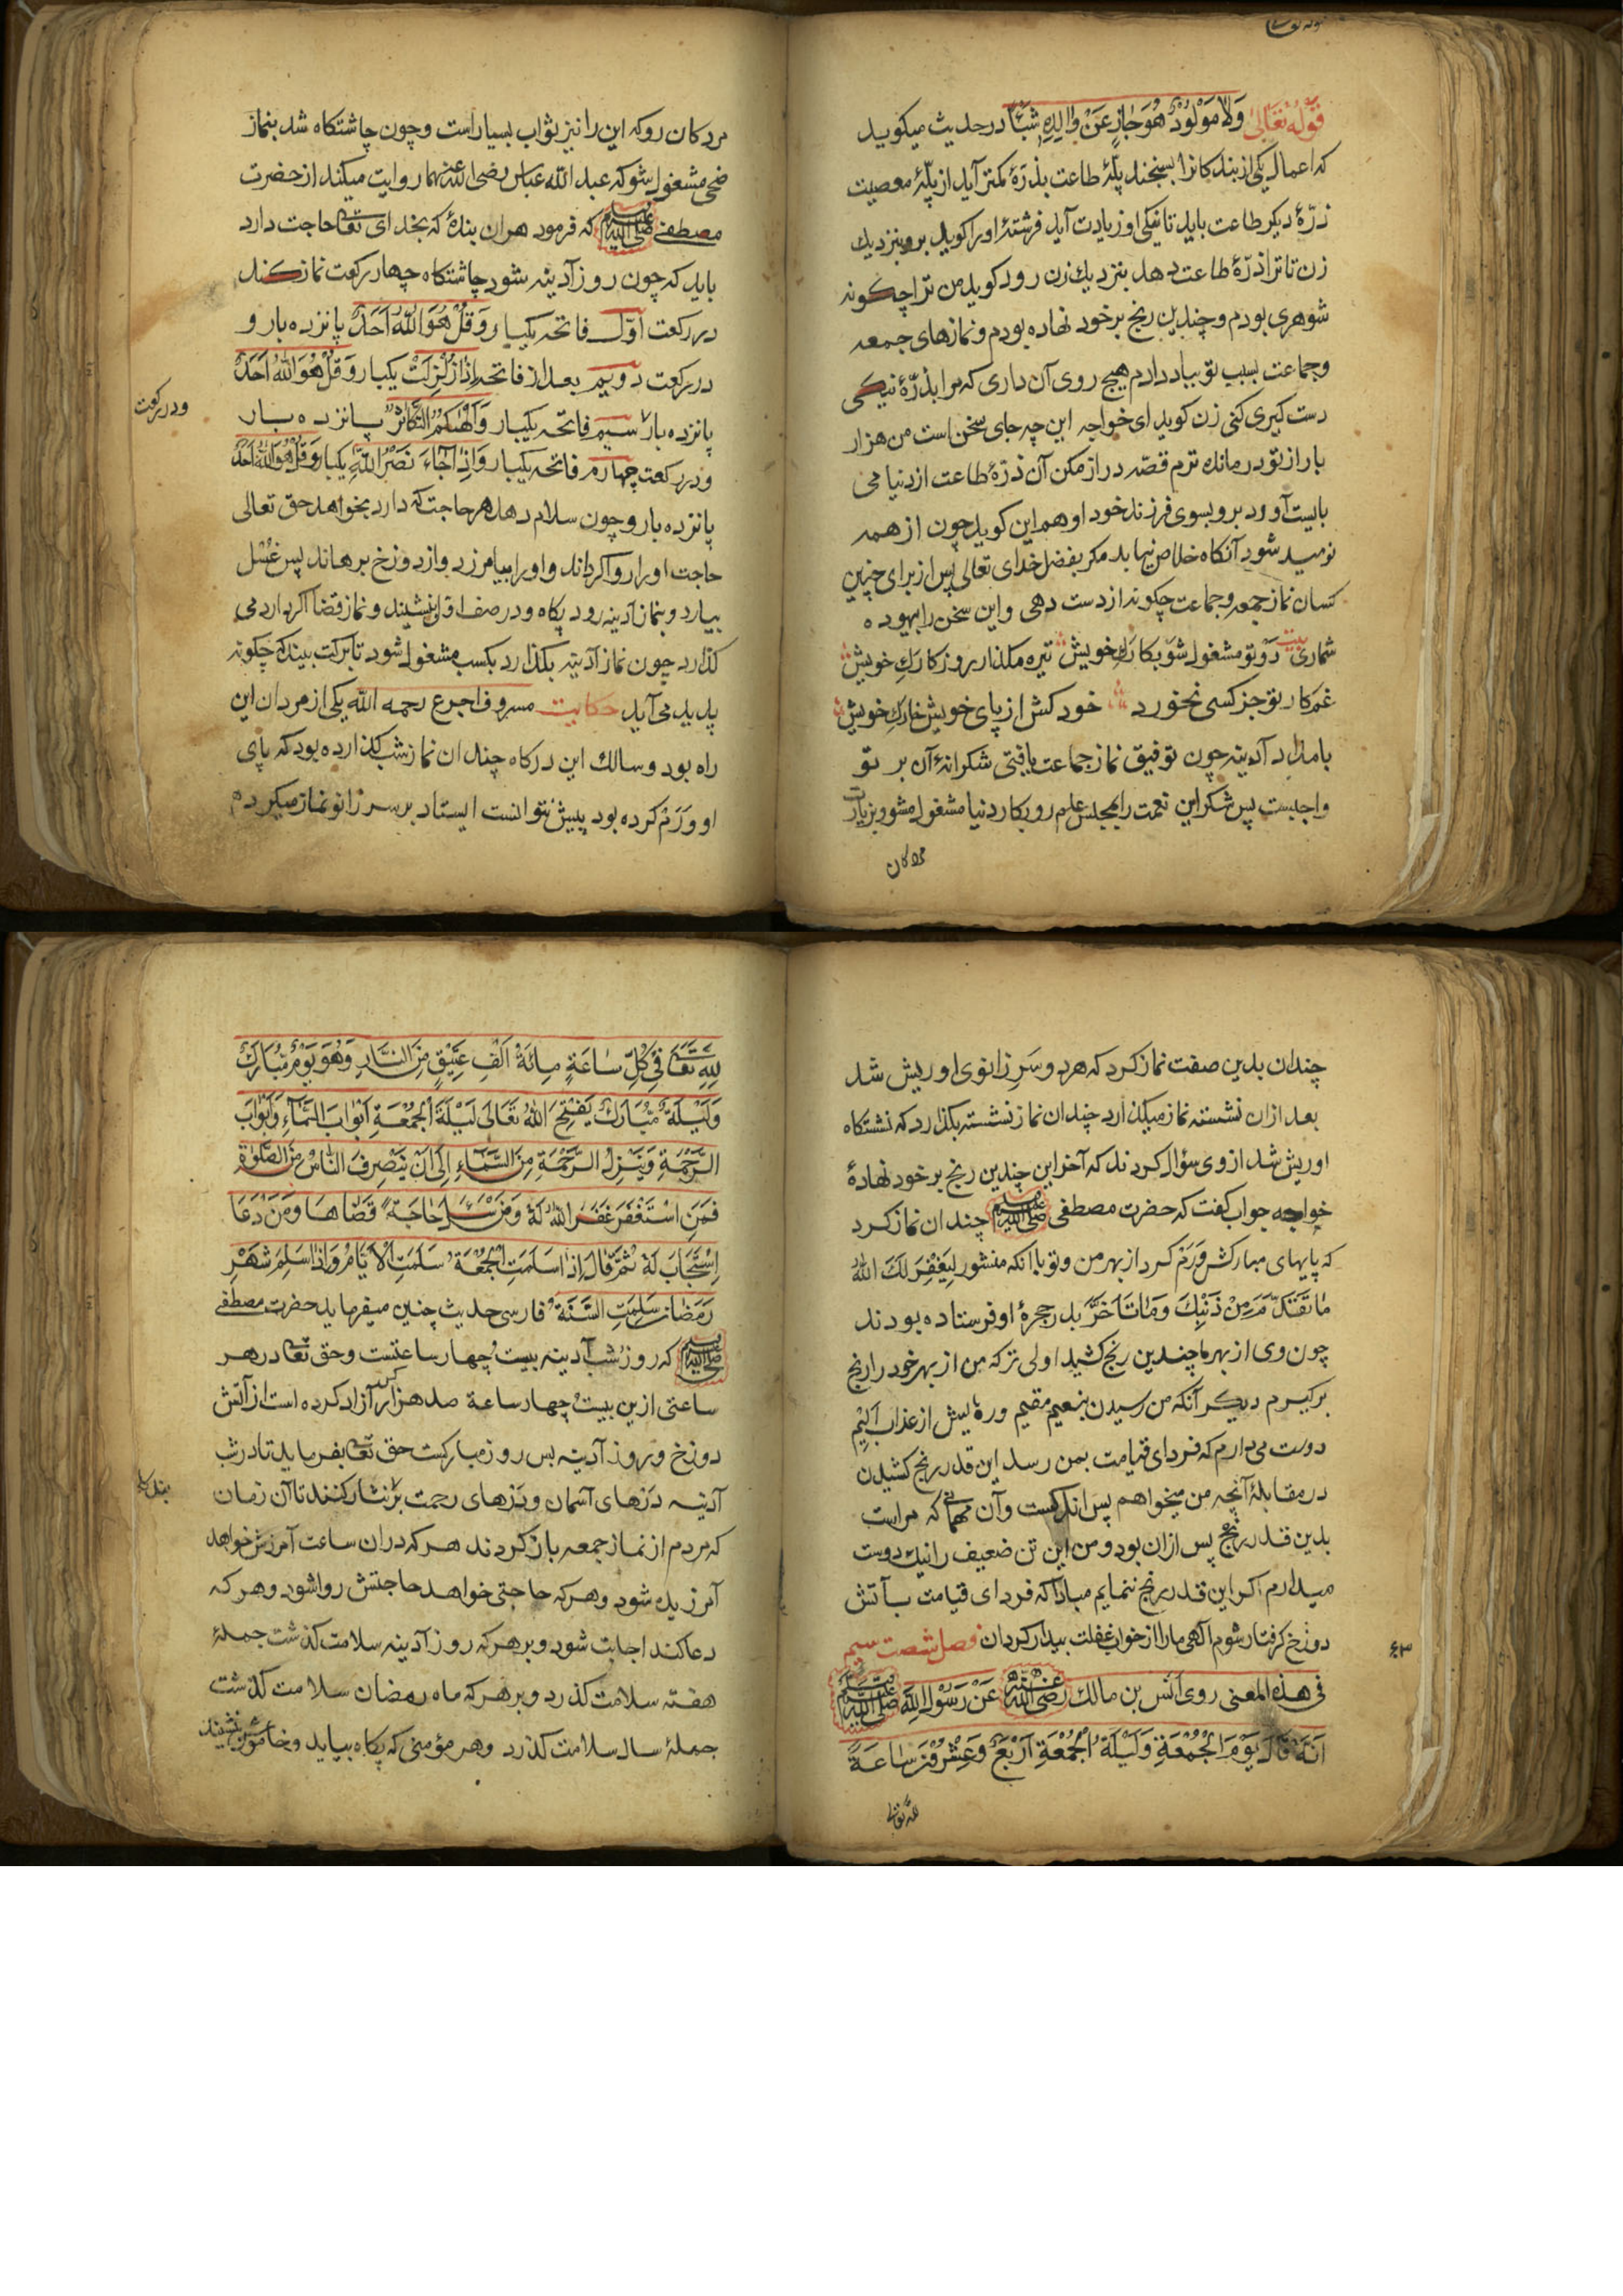 قَوْلُهُ تَعَالٰی وَلَا مَوْلُودٌ هُوَ جَازٍ عَنْ وَالِدِهِ شَيْئًا در حدیث میکوید
که اعمال یکی از بندکانرا بسنجند پلّهٔ طاعت بذرّهٔ کمتر آید از پلّهٔ معصیت
ذرّهٔ دیکر طاعت باید تا نیکی او زیادت آید فرشتهٔ اورا کوید برو بنزدیك
زن تا ترا ذرّهٔ طاعت دهد بنزدیك زن رود کوید من ترا چکونه
شوهری بودم و چندین رنج برخود نهاده بودم و نمازهای جمعه
وجماعت بسبب تو بباد دادم هیچ روی آن داری که مرا بذرّهٔ نیکی
دست کیری کنی زن کوید ای خواجه این چه جای سخن است من هزار
بار از تو درمانده ترم قصّه دراز مکن آن ذرّهٔ طاعت از دنیا می
بایست آورد برو بسوی فرزند خود او هم این کوید چون از همه
نومید شود آنکاه خلاص نیابد مکر بفضل خدای تعالی پس از برای چنین
کسان نماز جمعه وجماعت چکونه از دست دهی و این سخن را بیهوده
شماری بیت رَوْ تو مشغول شو بکارك خویش تیره مکذار روزکارك خویش
غم کار تو جز کسی نخورد خود کش از پای خویش خارك خویش
بامداد آدینه چون توفیق نماز جماعت یافتی شکرانهٔ آن بر تو
واجبست پس شکر این نعمت را بمجلس علم رو بکار دنیا مشغول مشو و بزیارت
مردکان
مردکان رو که این را نیز ثواب بسیار است وچون چاشتکاه شد بنماز
ضحی مشغول شو که عبد الله عباس رضی الله عنهما روایت میکند از حضرت
مصطفی صلی الله علیه وسلم که فرمود هر آن بندهٔ که بخدای تعا حاجت دارد
باید که چون روز آدینه بشود چاشتکاه چهار رکعت نماز کند
در رکعت اوّل فاتحه یکبار وَقُلْ هُوَ اللّٰهُ اَحَدٌ پانزده بار و
در رکعت دویم بعد از فاتحه اِذَا زُلْزِلَتْ یکبار وَقُلْ هُوَ اللّٰهُ اَحَدٌ
پانزده بار سیم فاتحه یکبار وَاَلْهٰیکُمُ التَّکَاثُرُ پانزده بار
ودر رکعت
ودر رکعت چهارم فاتحه یکبار وَاِذَا جَاءَ نَصْرُ اللّٰهِ یکبار وَقُلْ هُوَ اللّٰهُ اَحَدٌ
پانزده بار وچون سلام دهد هر حاجت که دارد بخواهد حق تعالی
حاجت اورا روا کرداند و اورا بیامرزد و از دوزخ برهاند پس غسل
بیارد و بنماز آدینه رود پکاه و در صف اوّل نشیند و نماز قضا اکر دارد می
کذارد چون نماز آدینه بکذارد بکسب مشغول شود تا برکت بیند که چکونه
پدید می آید حکایت مسروف اجرع رحمه الله یکی از مردان این
راه بود و سالك این درکاه چندان نماز شب کذارده بود که پای
او وَرَمْ کرده بود پیش نتوانست ایستاد بر سر زانو نماز میکرد
چندان بدین صفت نماز کرد که هر دو سَرِ زانوی او ریش شد
بعد ازان نشسته نماز میکذارد چندان نماز نشسته بکذارد که نشستکاه
او ریش شد از وی سؤال کردند که آخر این چندین رنج برخود نهادهٔ
خواجه جواب کفت که حضرت مصطفی صلی الله علیه وسلم چندان نماز کرد
که پایهای مبارکش وَرَمْ کرد از بهر من و تو با انکه منشور لِیَغْفِرَ لَكَ اللّٰهُ
مَا تَقَدَّمَ مِنْ ذَنْبِكَ وَمَا تَأَخَّرَ بدر حجرهٔ او فرستاده بودند
چون وی از بهر ما چندین رنج کشید اولی تر که من از بهر خود را رنج
برکیرم دیکر آنکه من رسیدن بنعیم مقیم ورهایش از عذاب الیم
دوست می دارم که فردای قیامت بمن رسد این قدر رنج کشیدن
در مقابلهٔ آنچه من میخواهم پس اندکست وآن مهمّی که مراست
بدین قدر رنج پس ازان بود ومن این تن ضعیف را نیك دوست
میدارم اکر این قدر رنج ننمایم مبادا که فردای قیامت بآتش
دوزخ کرفتار شوم آلهی مارا از خواب غفلت بیدار کردان فصل شصت سیم
۶۳
فی هذه المعنی روی انس بن مالك رضی الله عنه عَنْ رَسُولِ اللّٰهِ صلی الله علیه وسلم
اَنَّهُ قَالَ یَوْمَ الْجُمُعَةِ وَلَیْلَةُ الْجُمُعَةِ اَرْبَعٌ وَعِشْرُونَ سَاعَةً
لله تعالی
لِلّٰهِ تَعَا فِی کُلِّ سَاعَةٍ مِائَةُ اَلْفِ عَتِیْقٍ مِنَ النَّارِ وَهُوَ یَوْمٌ مُبَارَكٌ
وَلَیْلَةٌ مُبَارَكٌ یَفْتِحُ اللّٰهُ تَعَالٰی لَیْلَةَ الْجُمُعَةِ اَبْوَابَ السَّمَاءِ وَاَبْوَابَ
الرَّحْمَةِ وَیَنْزِلُ الرَّحْمَةِ مِنَ السَّمَاءِ اِلٰی اَنْ یَنْصَرِفَ النَّاسُ مِنَ الصَّلٰوةِ
فَمَنِ اسْتَغْفَرَ غَفَرَ اللّٰهُ لَهُ وَمَنْ سَأَلَ حَاجَةً قَضَاهَا وَمَنْ دَعَا
اِسْتَجَابَ لَهُ ثُمَّ قَالَ اِذَا سَلِمَتِ الْجُمُعَةُ سَلَمَتِ الْاَیَّامُ وَاِذَا سَلِمَ شَهْرِ
رَمَضَانَ سَلِمَتِ السَّنَةُ فارسی حدیث چنین میفرماید حضرت مصطفی
صلی الله علیه وسلم که روز شب آدینه بیست وچهار ساعتست وحق تعا در هر
ساعتی ازین بیست وچهار ساعة صد هزار کس آزاد کرده است از آتش
دوزخ وروز آدینه بس روز مبارکست حق تعا بفرماید تا در شب
آدینه دَرْهای آسمان ودَرْهای رحمت بر نثار کنند تا آن زمان
که مردم از نماز جمعه باز کردند هر که دران ساعت آمرزش خواهد
آمرزیده شود وهر که حاجتی خواهد حاجتش روا شود وهر که
دعا کند اجابت شود وبر هر که روز آدینه سلامت کذشت جملهٔ
هفته سلامت کذرد وبر هر که ماه رمضان سلامت کذشت
جملهٔ سال سلامت کذرد وهر مؤمنی که پکاه بیاید وخاموش بنشیند